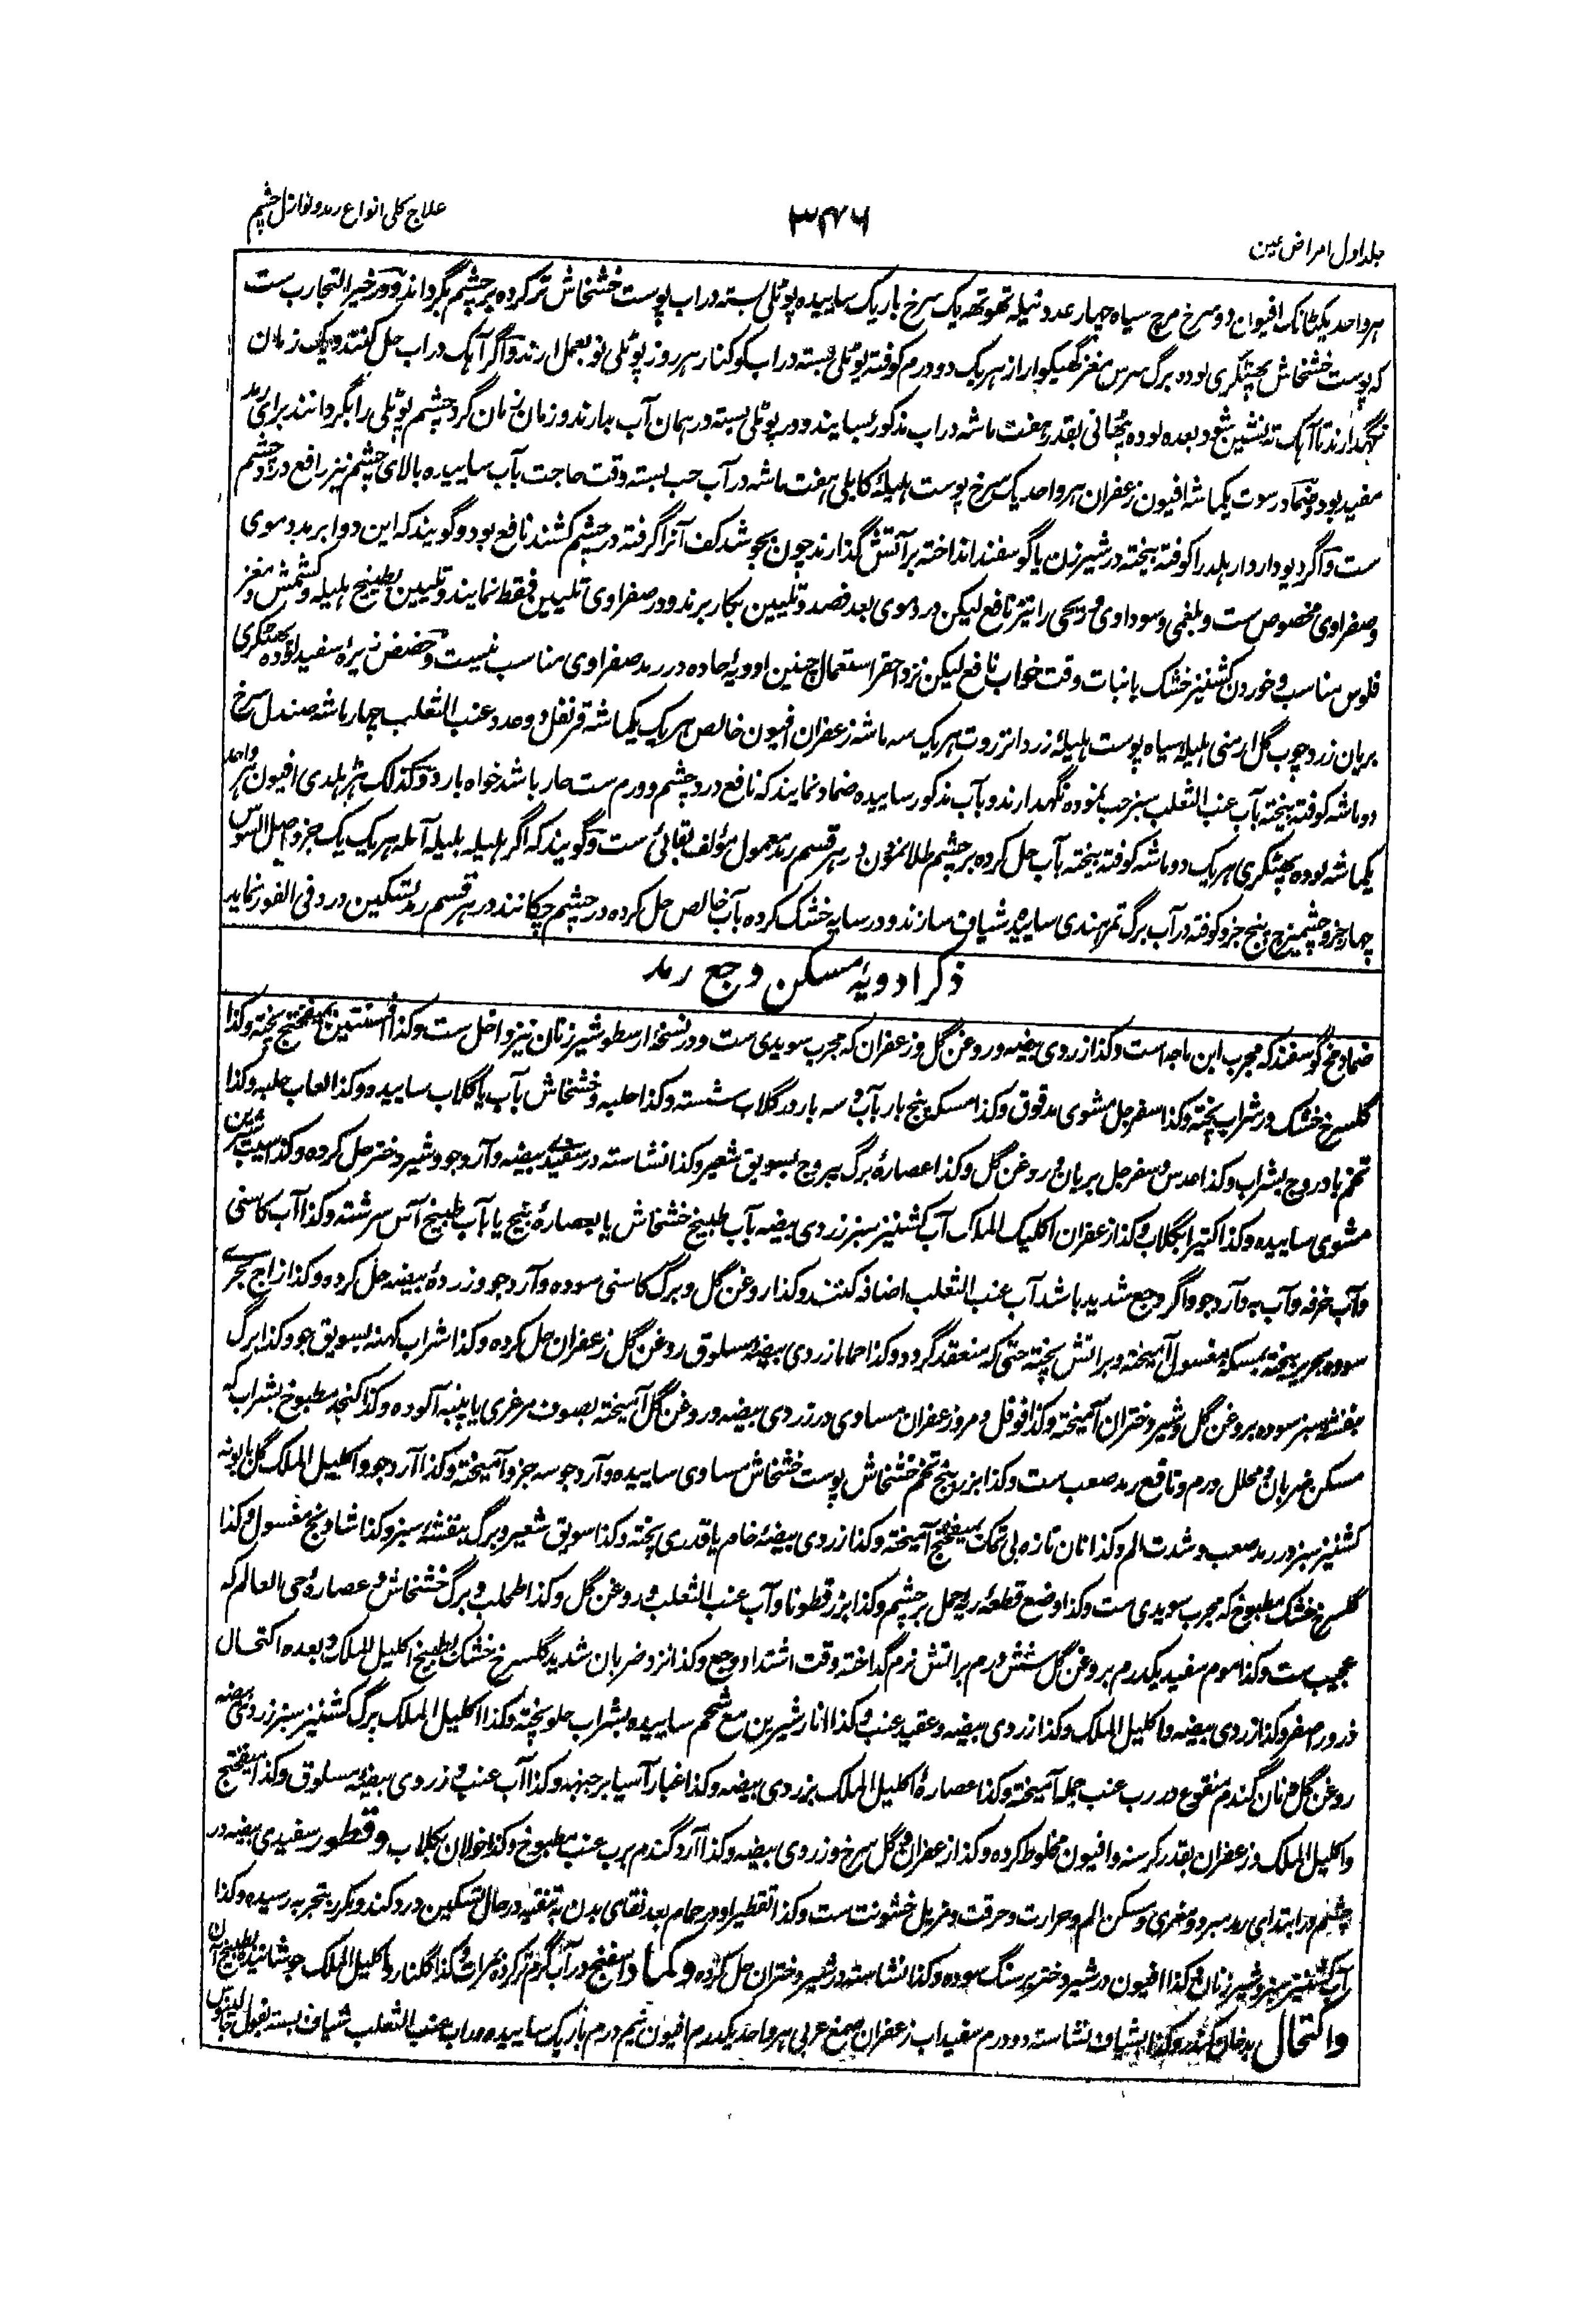 جلد اول امراض عین
۳۴۶
علاج کلی انواع رمد و نوازل چشم
هر واحد یکٹانک افیون دو سرخ مرچ سیاه چهار عدد نیله تهوتهه یک سرخ باریک ساییده پوٹلی بسته در آب پوست خشخاش تر کرده بر چشم بگردانند و در خیر التجارب ست
که پوست خشخاش پهٹکری لوده برگ سرس مغز گهیکوار از هر یک دو درم کوفته پوٹلی بسته در آب کوکنار هر روز پوٹلی نو بعمل آرند و اگر آهک در آب حل کنند و یک زمان
نگهدارند تا آهک ته نشین شود بعده لوده پٹهانی بقدر هفت ماشه در آب مذکور بسایند و در پوٹلی بسته در همان آب بدارند و زمان زمان گرد چشم پوٹلی را بگردانند برای رمد
مفید بود و ضماد رسوت یکماشه افیون زعفران هر واحد یک سرخ پوست هلیلهٔ کابلی هفت ماشه در آب حب بسته وقت حاجت بآب ساییده بالای چشم نیز رافع درد چشم
ست و اگر دیودار دار هلد را کوفته بیخته در شیر زن یا گوسفند انداخته بر آتش گذارند چون بجوشد کف آنرا گرفته در چشم کشند نافع بود و گویند که این دوا برمد دموی
و صفراوی مخصوص ست و بلغمی و سوداوی و ریحی را نیز نافع لیکن در دموی بعد فصد و تلیین بکار برند و در صفراوی تلیین فقط نمایند و تلیین بطبیخ هلیله و کشمش و مغز
فلوس مناسب و خوردن کشنیز خشک با نبات وقت خواب نافع لیکن نزد احقر استعمال چنین ادویهٔ حاده در رمد صفراوی مناسب نیست و حضض زیرهٔ سفید لوده پهٹکری
بریان زردچوب گل ارمنی هلیلهٔ سیاه پوست هلیلهٔ زرد انزروت هر یک سه ماشه زعفران افیون خالص هر یک یکماشه قرنفل دو عدد عنب الثعلب چهار ماشه صندل سرخ
دو ماشه کوفته بیخته بآب عنب الثعلب سبز حب نموده نگهدارند و بآب مذکور ساییده ضماد نمایند که نافع درد چشم و ورم ست حار باشد خواه بارد و کذلک هڑ هلدی افیون هر واحد
یکماشه لوده پهٹکری هر یک دو ماشه کوفته بیخته بآب حل کرده بر چشم طلا نمودن در هر قسم رمد معمول مؤلف بقائی ست و گویند که اگر هلیله بلیله آمله هر یک یک جزو اصل السوس
چهار جزو چشمیزج پنج جزو کوفته در آب برگ تمر هندی ساییده شیاف سازند و در سایه خشک کرده بآب خالص حل کرده در چشم چکانند در هر قسم رمد تسکین درد فی الفور نماید
ذکر ادویهٔ مسکن وجع رمد
ضماد مخ گوسفند که مجرب ابن ماجد است و کذا زردی بیضه و روغن گل و زعفران که مجرب سویدی ست و در نسخهٔ ارسطو شیر زنان نیز داخل ست و کذا افسنتین بمیفختج پخته و کذا
گلسرخ خشک در شراب پخته و کذا سفرجل مشوی مدقوق و کذا مسکه پنج بار بآب و سه بار در گلاب شسته و کذا حلبه و خشخاش بآب یا گلاب ساییده و کذا لعاب حلبه و کذا
تخم بادروج بشراب و کذا عدس و سفرجل بریان و روغن گل و کذا عصارهٔ برگ یبروج بسویق شعیر و کذا نشاسته در سفیدی بیضه و آرد جو و شیر دختر حل کرده و کذا سیب شیرین
مشوی ساییده و کذا کتیرا بگلاب و کذا زعفران اکلیل الملک آب کشنیز سبز زردی بیضه بآب طبیخ خشخاش یا بعصارهٔ بنج یا بآب طبیخ آس سرشته و کذا آب کاسنی
و آب خرفه و آب به و آرد جو و اگر وجع شدید باشد آب عنب الثعلب اضافه کنند و کذا روغن گل و برگ کاسنی سوده و آرد جو و زردهٔ بیضه حل کرده و کذا زاج بحری
سوده بحریر بیخته بمسکهٔ مغسول آمیخته و بر آتش پخته حتی که منعقد گردد و کذا حماما زردی بیضهٔ مسلوق روغن گل زعفران حل کرده و کذا شراب کهنه بسویق جو و کذا برگ
بنفشهٔ سبز سوده بروغن گل و شیر دختران آمیخته و کذا فوفل و مر و زعفران مساوی در زردی بیضه و روغن گل آمیخته بصوف مرغزی یا پنبه آلوده و کذا کنجد مطبوخ بشراب که
مسکن ضربان و محلل ورم و نافع رمد صعب ست و کذا بزر بنج تخم خشخاش پوست خشخاش مساوی ساییده و آرد جو سه جزو آمیخته و کذا آرد جو و اکلیل الملک گل بابونه
کشنیز سبز در رمد صعب و شدت الم و کذا نان تازه بی نمک بمیفختج آمیخته و کذا زردی بیضهٔ خام یا قدری پخته و کذا سویق شعیر و برگ بنفشهٔ سبز و کذا شادنج مغسول و کذا
گلسرخ خشک مطبوخ که مجرب سویدی ست و کذا وضع قطعهٔ ریهٔ حمل بر چشم و کذا بزر قطونا و آب عنب الثعلب و روغن گل و کذا طحلب و برگ خشخاش و عصارهٔ حی العالم که
عجیب ست و کذا موم سفید یکدرم بروغن گل شش درم بر آتش نرم گداخته وقت اشتداد وجع و کذا نزد ضربان شدید گلسرخ خشک بطبیخ اکلیل الملک و بعده اکتحال
ذرور اصفر و کذا زردی بیضه و اکلیل الملک و کذا زردی بیضه و عقید عنب و کذا انار شیرین مع شحم ساییده بشراب حلو پخته و کذا اکلیل الملک برگ کشنیز سبز زردی بیضه
روغن گل و نان گندم منقوع در رب عنب جمله آمیخته و کذا عصارهٔ اکلیل الملک بزردی بیضه و کذا غبار آسیا بر جبهه و کذا آب عنب و زردی بیضهٔ مسلوق و کذا میفختج
و اکلیل الملک و زعفران بقدر کرسنه و افیون مخلوط کرده و کذا زعفران و گل سرخ و زردی بیضه و کذا آرد گندم برب عنب مطبوخ و کذا خولان بگلاب و قطور سفیدی بیضه در
چشم در ابتدای رمد مبرد و مغری و مسکن الم و حرارت و حرقت و مزیل خشونت ست و کذا تقطیر او در حمام بعد نقای بدن به تنقیه در حال تسکین درد کند و مکرر بتجربه رسیده و کذا
آب کشنیز سبز و شیر زنان و کذا افیون در شیر دختر بر سنگ سوده و کذا نشاسته در شیر دختران حل کرده و کماد اسفنج در آب گرم تر کرده بمرات و کذا گلنار و اکلیل الملک جوشانیده بطبیخ آن
و اکتحال بدخان کندر و کذا بشیاف نشاسته دو درم سفیداب زعفران صمغ عربی هر واحد یکدرم افیون نیم درم باریک ساییده در آب عنب الثعلب شیاف بسته بقول جالینوس